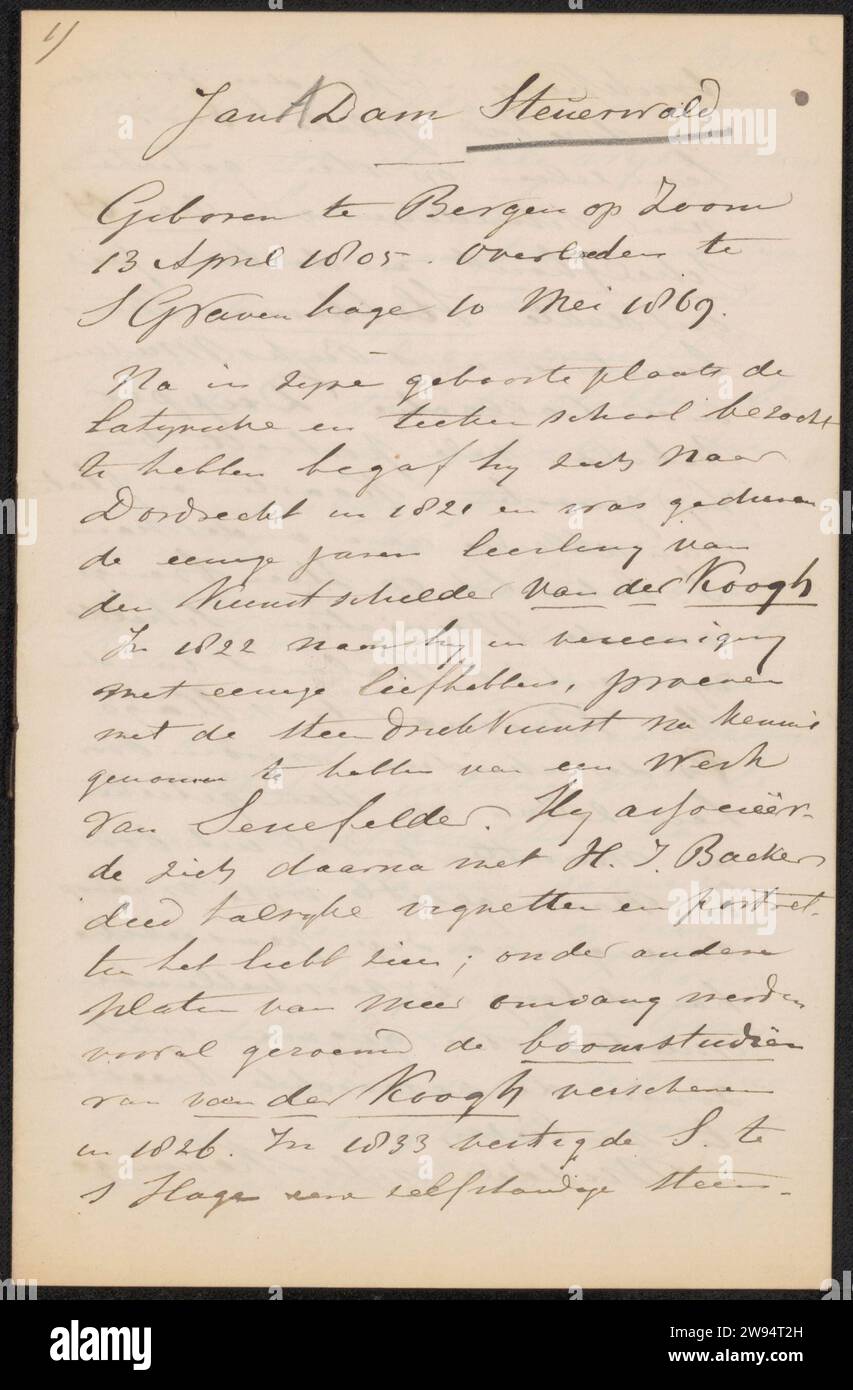 1)
Jan Dam Steuerwald
Geboren te Bergen op Zoom
13 April 1805. Overleden te
S Gravenhage 10 Mei 1869.
Na in zijne geboorteplaats de
Latynsche en teekenschool bezocht
te hebben begaf hy zich naar
Dordrecht in 1821 en was geduren
de eenige jaren leerling van
den Kunstschilder van der Koogh
In 1822 nam hy in vereeniging
met eenige liefhebbers, proeven
met de steendrukkunst na kennis
genomen te hebben van een Werk
van Senefelder. Hy associëer-
de zich daarna met H. J. Backer
deed talryke vignetten en portret-
ten het licht zien; onder andere
platen van meer omvang werden
vooral geroemd de boomstudiën
van van der Koogh verschenen
in 1826. In 1833 vestigde S. te
s Hage eene zelfstandige steen-
alamy
Image ID: 2W94T2H
www.alamy.com